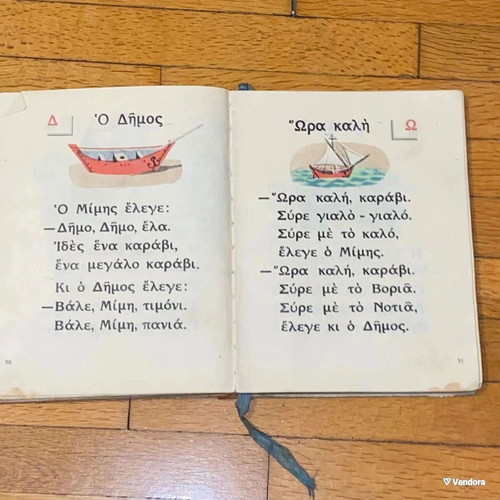 Δ
Ὁ Δῆμος
Ὁ Μίμης ἔλεγε:
—Δῆμο, Δῆμο, ἔλα.
Ἰδὲς ἕνα καράβι,
ἕνα μεγάλο καράβι.
Κι ὁ Δῆμος ἔλεγε:
—Βάλε, Μίμη, τιμόνι.
Βάλε, Μίμη, πανιά.
50
Ὥρα καλὴ
Ω
—Ὥρα καλή, καράβι.
Σύρε γιαλὸ - γιαλό.
Σύρε μὲ τὸ καλό,
ἔλεγε ὁ Μίμης.
—Ὥρα καλή, καράβι.
Σύρε μὲ τὸ Βοριᾶ.
Σύρε μὲ τὸ Νοτιᾶ,
ἔλεγε κι ὁ Δῆμος.
51
Vendora